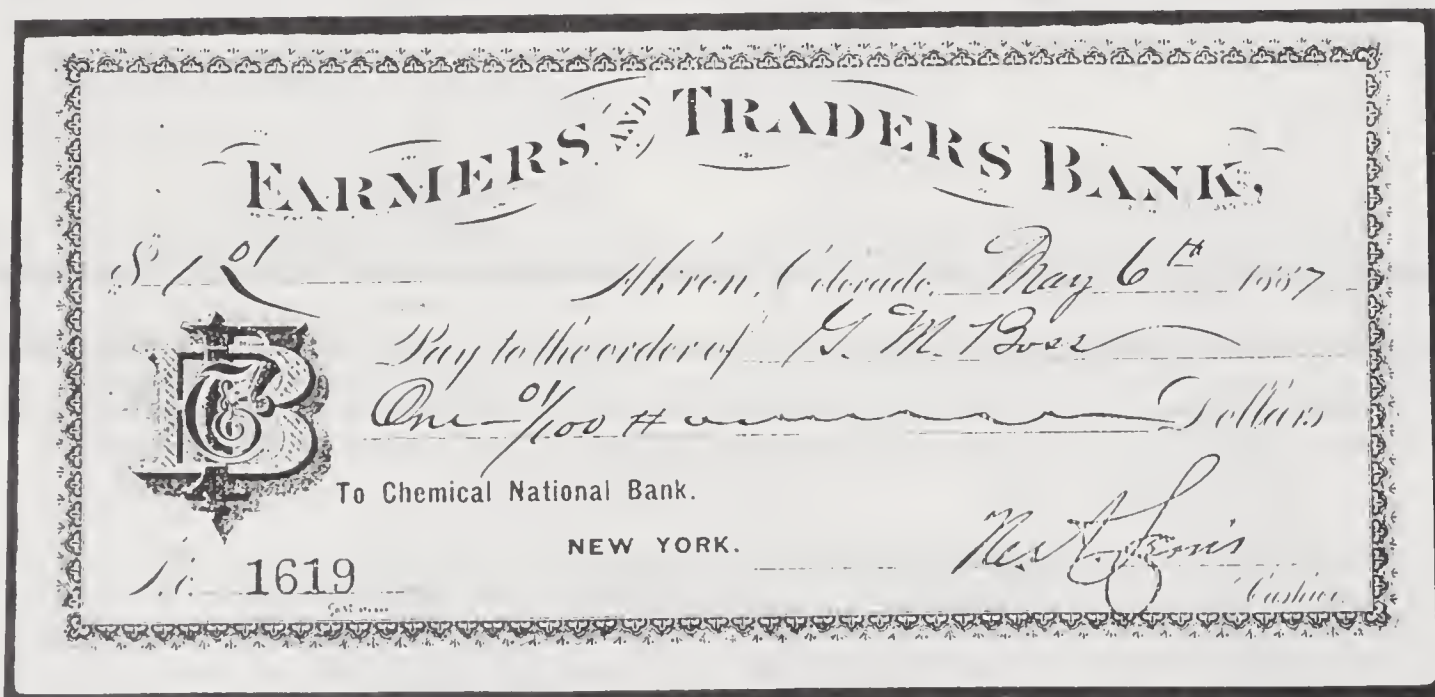 FARMERS AND TRADERS BANK,
$ 1 01
Akron, Colorado, May 6th 1887
Pay to the order of G. M. Boss
One 01/100 Dollars
To Chemical National Bank.
NEW YORK.
No. 1619
Cashier.